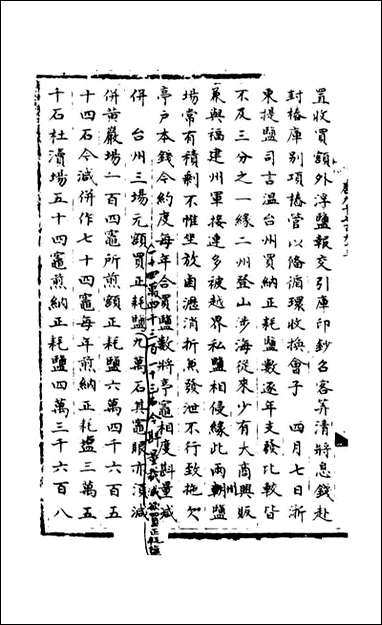 置收買額外浮鹽報交引庫印鈔名客筭清將息錢赴
封樁庫別項樁管以俻循環收換會子 四月七日浙
東提鹽司言溫台州買納正耗鹽數逐年支發比較皆
不及三分之一緣二州登山涉海從來少有大商興販
兼與福建州軍接連多被越界私鹽相侵緣此兩州鹽
場常有積剩不惟坐放鹵瀝消折兼發泄不行致拖欠
亭戶本錢今約度每年合買鹽數將亭竈相度斟量減
併 台州三場元額買正耗鹽九萬石其竈眼亦須減
併黃巖場一百四竈所煎額正耗鹽六萬四千六百五
十四石今減併作七十四竈每年煎納正耗鹽三萬五
千石杜瀆場五十四竈煎納正耗鹽四萬三千六百八